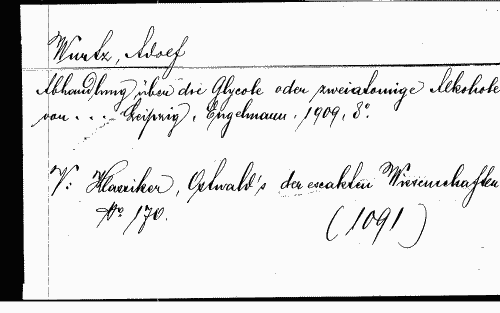 Wurtz, Adolf
Abhandlung über die Glycole oder zweiatomige Alkohole
von . . . Leipzig, Engelmann, 1909, 8º.
V: Klassiker, Ostwald's der exakten Wissenschaften
Nº 170.
(1091)